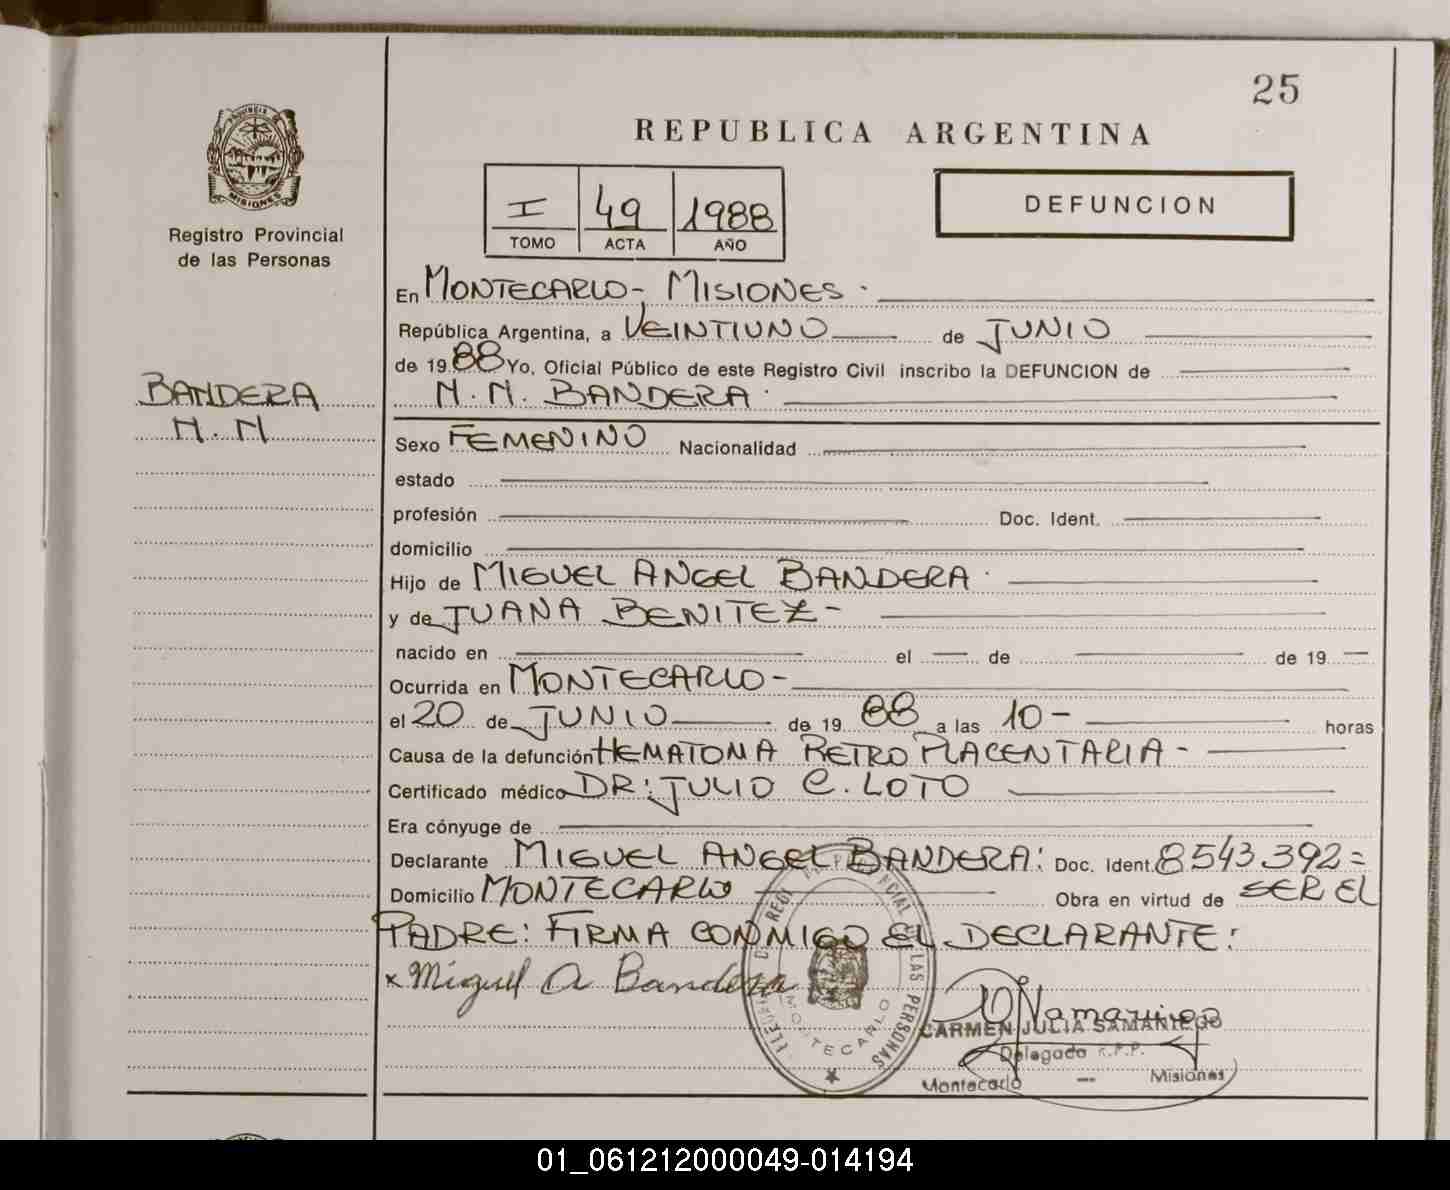 25
REPUBLICA ARGENTINA
PROVINCIA DE
MISIONES
Registro Provincial
de las Personas
I 49 1988
TOMO ACTA AÑO
DEFUNCION
En MONTECARLO-, MISIONES.
República Argentina, a VEINTIUNO de JUNIO
de 1988 Yo, Oficial Público de este Registro Civil inscribo la DEFUNCION de
BANDERA
N.N. BANDERA.
N.N
Sexo FEMENINO Nacionalidad
estado
profesión Doc. Ident.
domicilio
Hijo de MIGUEL ANGEL BANDERA.
y de JUANA BENITEZ-
nacido en el de de 19
Ocurrida en MONTECARLO-
el 20 de JUNIO de 19 88 a las 10- horas
Causa de la defunción HEMATOMA RETRO PLACENTARIA-
Certificado médico DR: JULIO C. LOTO
Era cónyuge de
Declarante MIGUEL ANGEL BANDERA: Doc. Ident. 8543.392=
Domicilio MONTECARLO Obra en virtud de SER EL
PADRE: FIRMA CONMIGO EL DECLARANTE:
x Miguel A Bandera
MONTECARLO
CARMEN JULIA SAMANIEGO
Delegada R.P.P.
Montecarlo — Misiones
01_061212000049-014194